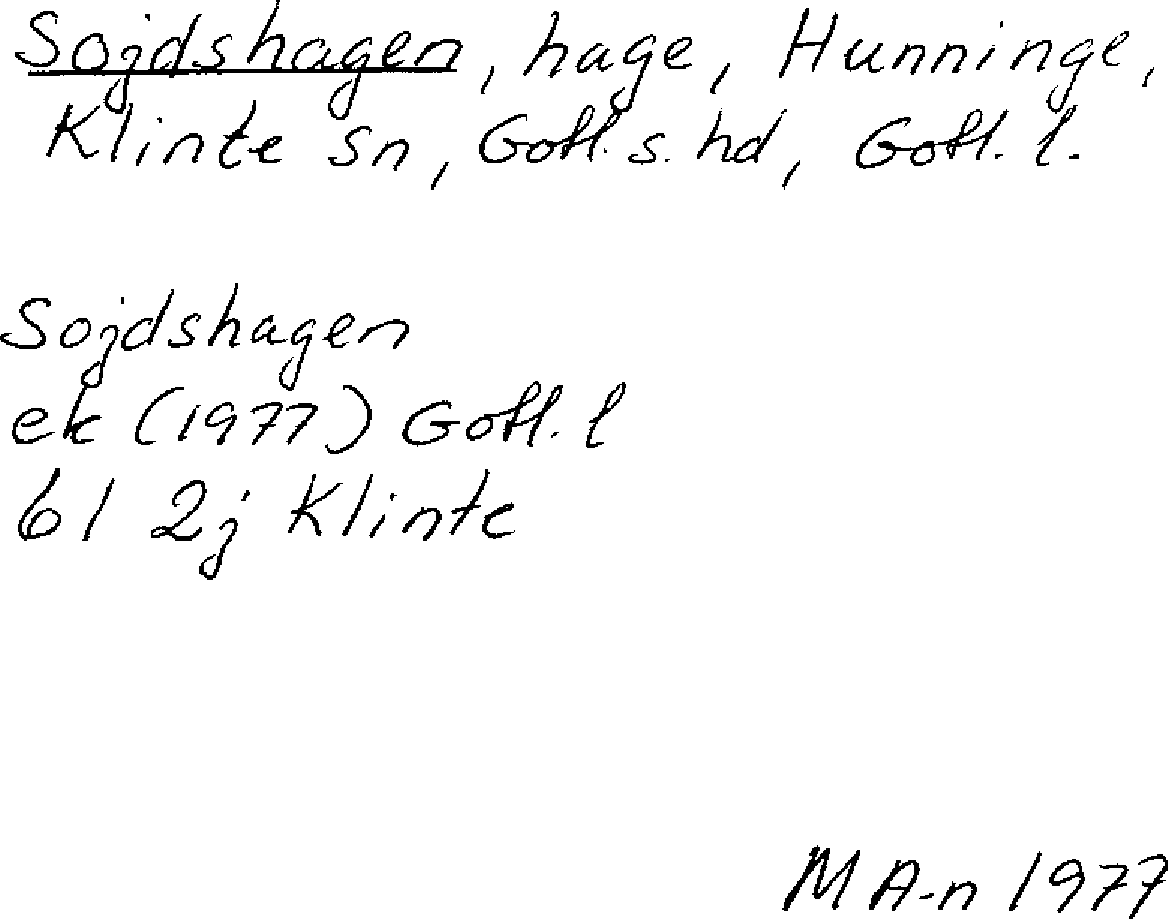 Sojdshagen, hage, Hunninge,
Klinte sn, Gotl. s. hd, Gotl. l.
Sojdshagen
ek (1977) Gotl. l
61 2j Klinte
M A-n 1977